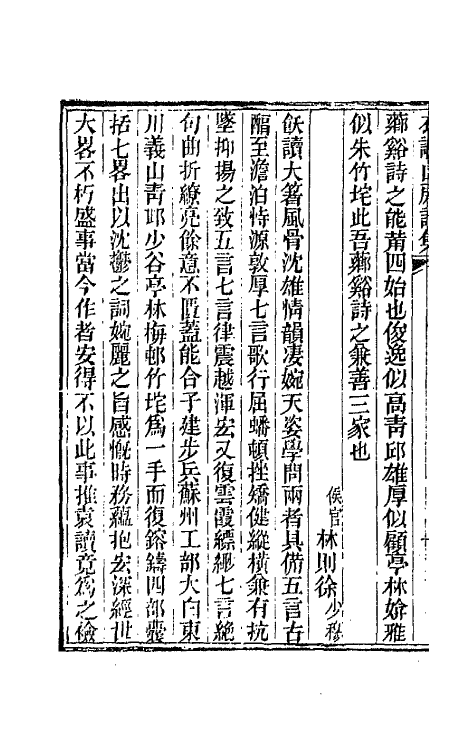 薌谿詩之能萳四始也俊逸似高靑邱雄厚似顧亭林媕雅
似朱竹垞此吾薌谿詩之兼善三家也
侯官林則徐少穆
飫讀大箸風骨沈雄情韻凄婉天姿學問兩者具備五言古
醞至澹泊恃源敦厚七言歌行屈蟠頓挫矯健縱橫兼有抗
墜抑揚之致五言七言律震越渾宏又復雲霞縹緲七言絶
句曲折繚亮餘意不匱蓋能合子建步兵蘇州工部太白東
川義山靑邱少谷亭林梅邨竹垞爲一手而復鎔鑄四部囊
括七畧出以沈鬱之詞婉麗之旨感慨時務蘊抱宏深經世
大畧不朽盛事當今作者安得不以此事推袁讀竟爲之斂